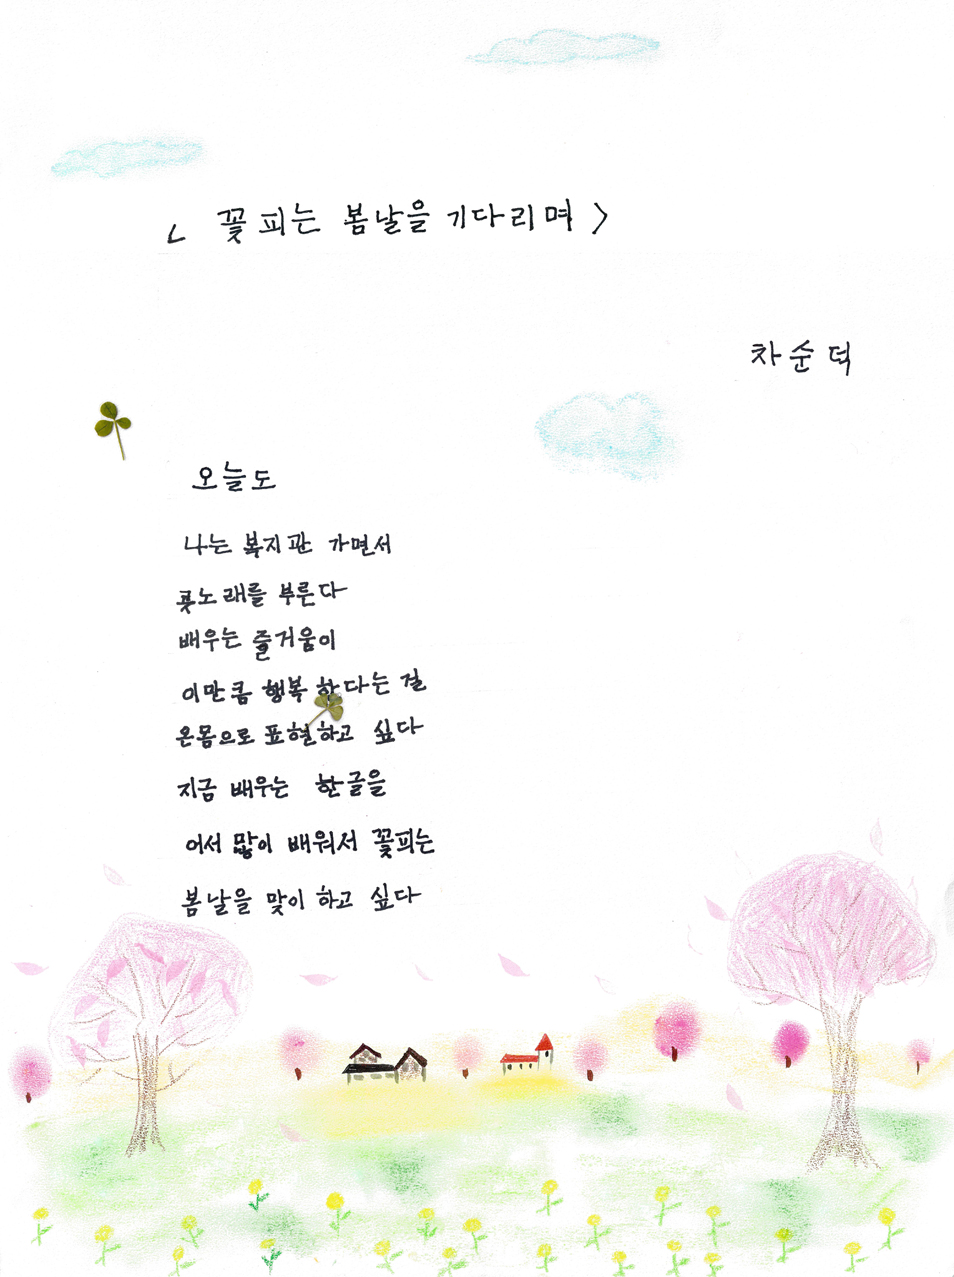 < 꽃피는 봄날을 기다리며 >
차순덕
오늘도
나는 복지관 가면서
콧노래를 부른다
배우는 즐거움이
이만큼 행복 한다는 걸
온몸으로 표현하고 싶다
지금 배우는 한글을
어서 많이 배워서 꽃피는
봄날을 맞이 하고 싶다